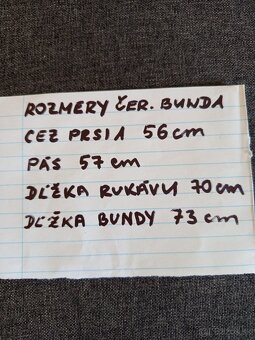 ROZMERY ČER. BUNDA
CEZ PRSIA 56 cm
PÁS 57 cm
DĹŽKA RUKÁVU 70 cm
DĹŽKA BUNDY 73 cm